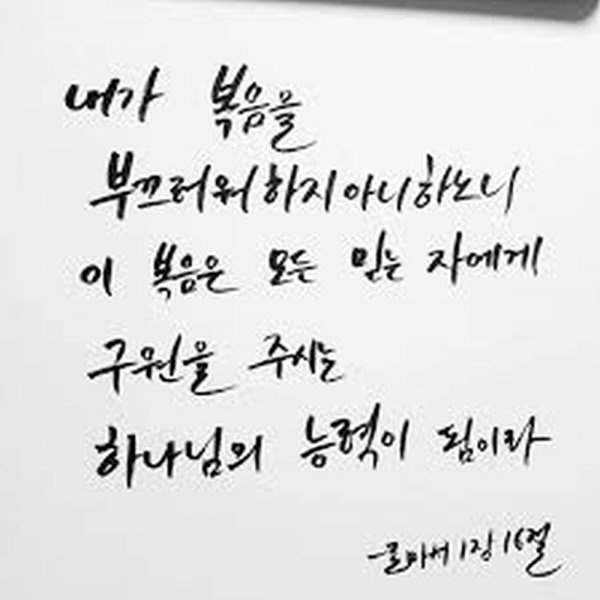 내가 복음을
부끄러워하지아니하노니
이 복음은 모든 믿는 자에게
구원을 주시는
하나님의 능력이 됨이라
-로마서 1장 16절